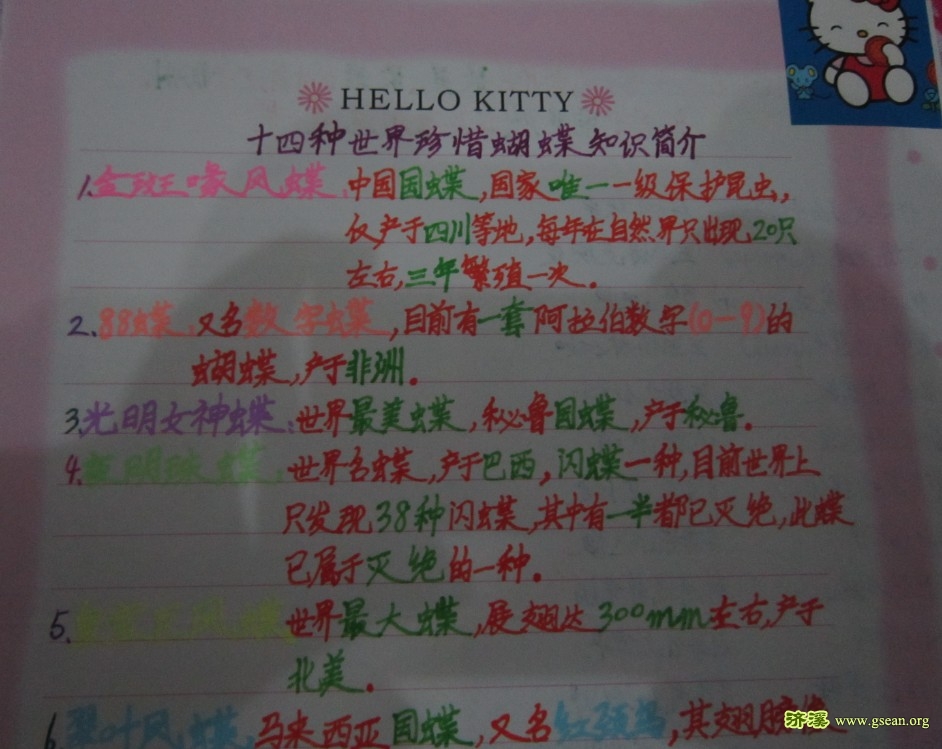 HELLO KITTY
十四种世界珍惜蝴蝶知识简介
1.金斑喙凤蝶:中国国蝶,国家唯一一级保护昆虫,
仅产于四川等地,每年在自然界只出现20只
左右,三年繁殖一次。
2.88蝶,又名数字蝶,目前有一套阿拉伯数字(0-9)的
蝴蝶,产于非洲。
3.光明女神蝶:世界最美蝶,秘鲁国蝶,产于秘鲁。
4.明珠蝶:世界名蝶,产于巴西,闪蝶一种,目前世界上
只发现38种闪蝶,其中有一半都已灭绝,此蝶
已属于灭绝的一种。
5.凤蝶 世界最大蝶,展翅达300mm左右,产于
北美。
6.叶凤蝶,马来西亚国蝶,又名红颈鸟,其翅膀
济溪 www.gsean.org